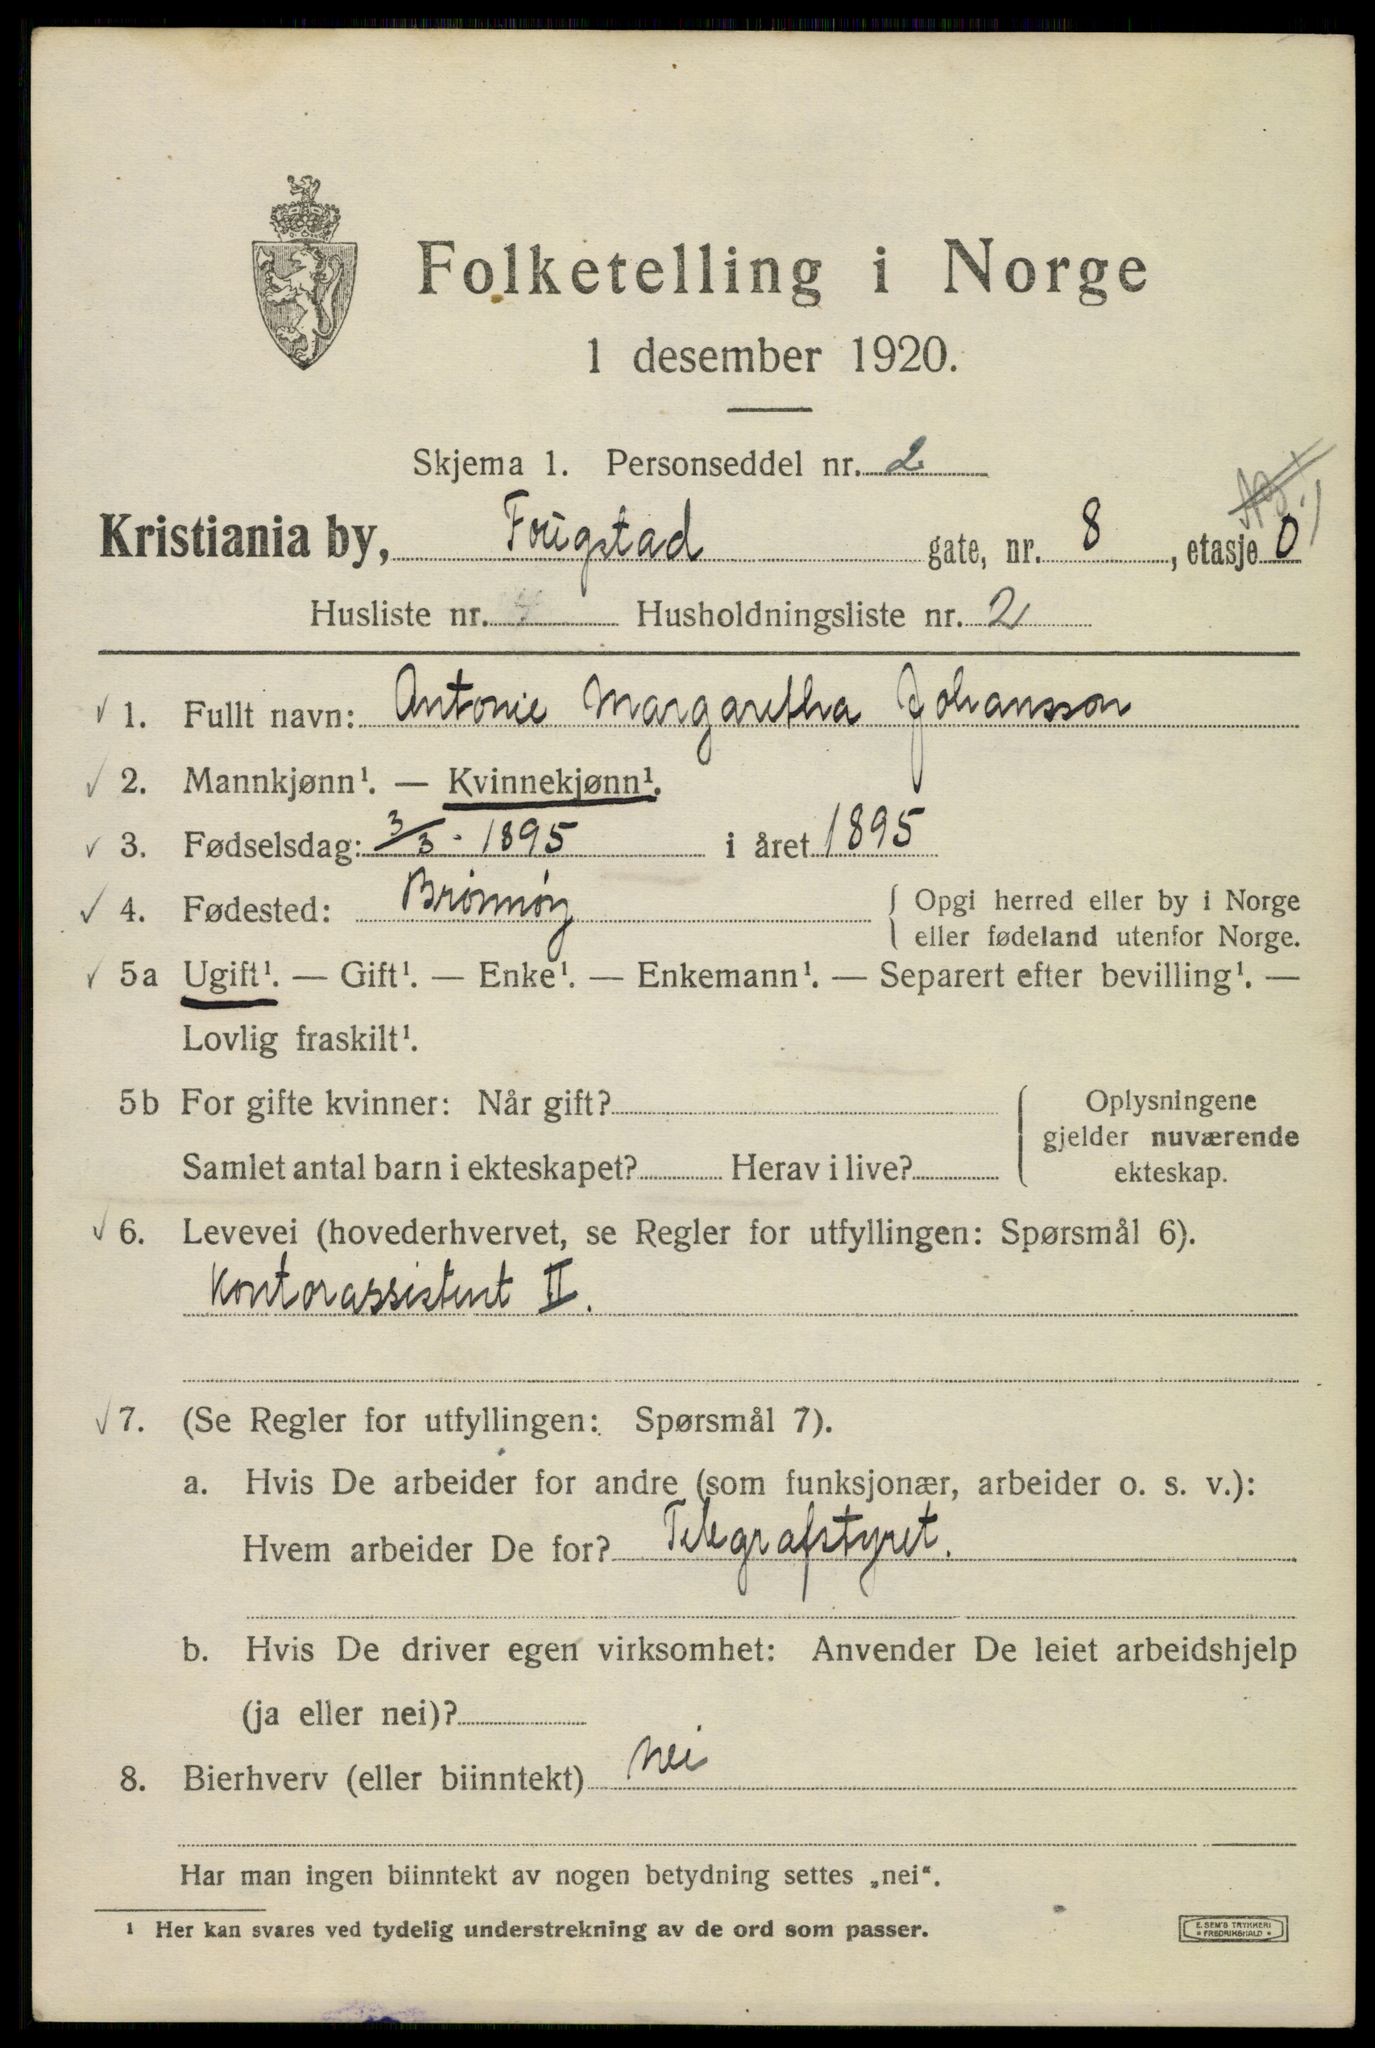 Folketelling i Norge
1 desember 1920.
Skjema 1. Personseddel nr. 2
Kristiania by, Fougstad gate, nr. 8, etasje 0
Husliste nr. 4 Husholdningsliste nr. 2
1. Fullt navn: Antonie Margaretha Johansson
2. Mannkjønn¹. — Kvinnekjønn¹.
3. Fødselsdag: 3/3 - 1895 i året 1895
4. Fødested: Brønnøy { Opgi herred eller by i Norge
eller fødeland utenfor Norge.
5a Ugift¹. — Gift¹. — Enke¹. — Enkemann¹. — Separert efter bevilling¹. —
Lovlig fraskilt¹.
5b For gifte kvinner: Når gift? { Oplysningene
gjelder nuværende
Samlet antal barn i ekteskapet? Herav i live? ekteskap.
6. Levevei (hovederhvervet, se Regler for utfyllingen: Spørsmål 6).
Kontorassistent II.
7. (Se Regler for utfyllingen: Spørsmål 7).
a. Hvis De arbeider for andre (som funksjonær, arbeider o. s. v.):
Hvem arbeider De for? Telegrafstyret.
b. Hvis De driver egen virksomhet: Anvender De leiet arbeidshjelp
(ja eller nei)?
8. Bierhverv (eller biinntekt) nei
Har man ingen biinntekt av nogen betydning settes „nei“.
¹ Her kan svares ved tydelig understrekning av de ord som passer.
E. SEM'S TRYKKERI
* FREDRIKSHALD *